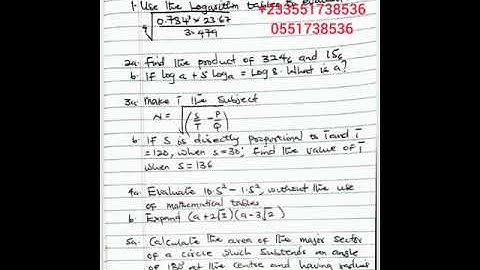 1. Use the Logarithm tables to evaluate
+233551738536
0551738536
√0.7341 × 23.67
3.479
2a. Find the product of 324₆ and 15₆
b. If log a + 5 log a = Log 8. What is a?
3a. Make T the subject
N = √(S/T - P/Q)
b. If S is directly proportional to T and T
= 120, when s = 30, find the value of T
when S = 136
4a. Evaluate 10.5² - 1.5², without the use
of mathematical tables
b. Expand (a + 2√2)(a - 3√2)
5a. Calculate the area of the major sector
of a circle which subtends an angle
of 130° at the centre and having radius